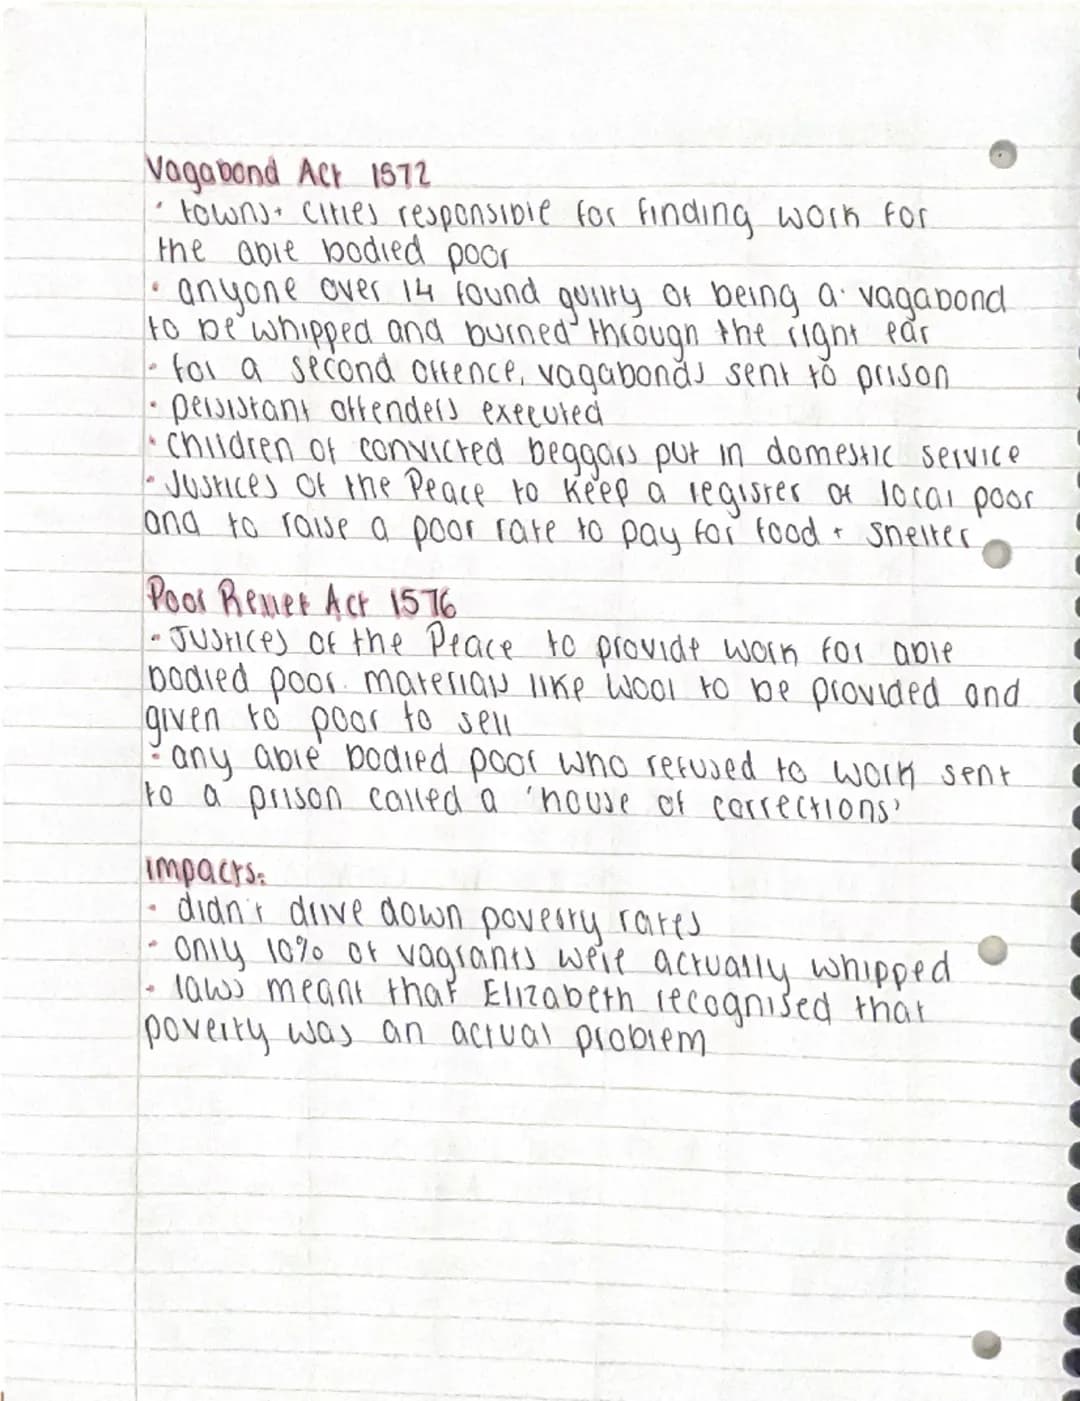 Vagabond Act 1572
• towns + cities responsible for finding work for
the able bodied poor
• anyone over 14 found guilty of being a vagabond
to be whipped and burned through the right ear
• for a second offence, vagabonds sent to prison
• persistant offenders executed
• children of convicted beggars put in domestic service
• Justices of the Peace to keep a register of local poor
and to raise a poor rate to pay for food + shelter
Poor Relief Act 1576
• Justices of the Peace to provide work for able
bodied poor. materials like wool to be provided and
given to poor to sell
• any able bodied poor who refused to work sent
to a prison called a 'house of corrections'
impacts:
• didn't drive down poverty rates
• only 10% of vagrants were actually whipped
• laws meant that Elizabeth recognised that
poverty was an actual problem